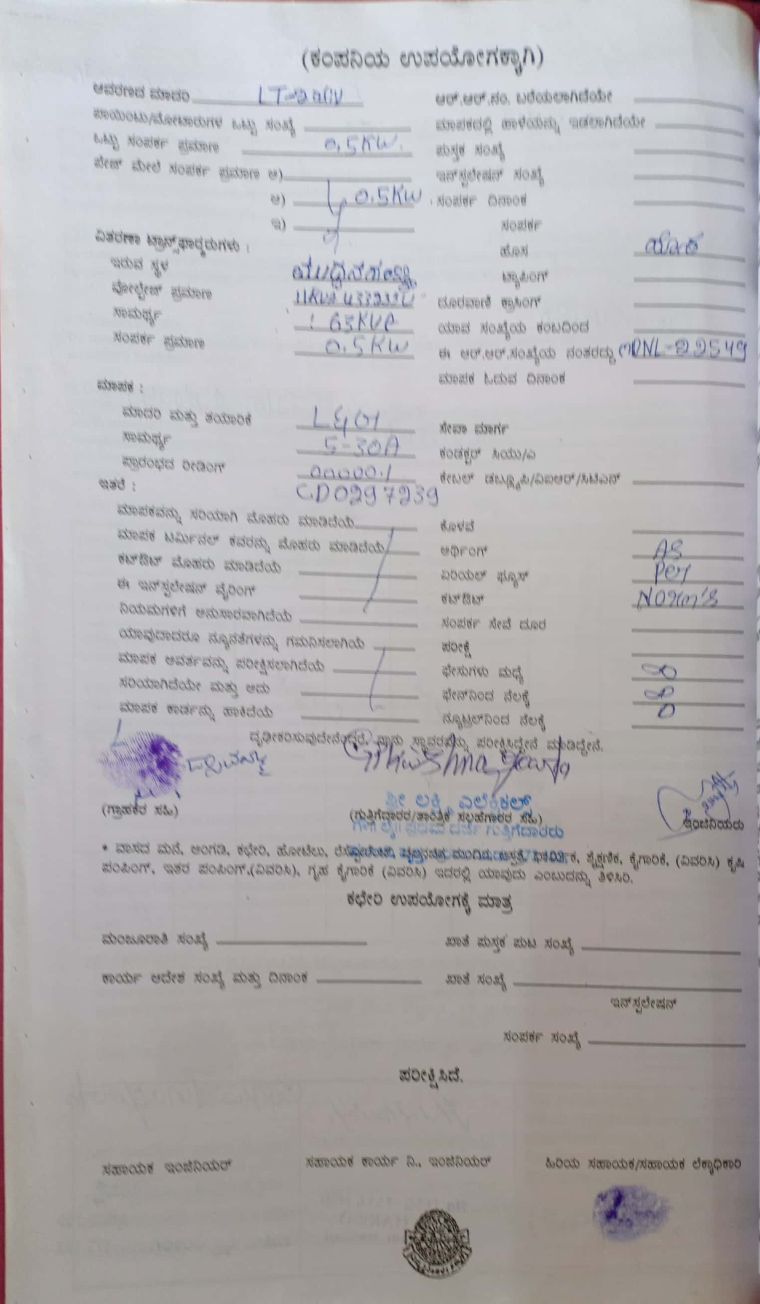 (ಕಂಪನಿಯ ಉಪಯೋಗಕ್ಕಾಗಿ)
ಆವರಣದ ಮಾದರಿ LT-2 ಆರ್.ಆರ್.ನಂ. ಬರೆಯಲಾಗಿದೆಯೇ
ಪಾಯಿಂಟು/ಮೋಟಾರುಗಳ ಒಟ್ಟು ಸಂಖ್ಯೆ ಮಾಪಕದಲ್ಲಿ ಹಾಳೆಯನ್ನು ಇಡಲಾಗಿದೆಯೇ
ಒಟ್ಟು ಸಂಪರ್ಕ ಪ್ರಮಾಣ 0.5KW. ಪುಸ್ತಕ ಸಂಖ್ಯೆ
ಪೇಜ್ ಮೇಲೆ ಸಂಪರ್ಕ ಪ್ರಮಾಣ ಅ) ಇನ್‌ಸ್ಟಲೇಷನ್ ಸಂಖ್ಯೆ
ಆ) 0.5KW ಸಂಪರ್ಕ ದಿನಾಂಕ
ಇ) ಸಂಪರ್ಕ
ವಿತರಣಾ ಟ್ರಾನ್ಸ್‌ಫಾರ್ಮರುಗಳು : ಹೊಸ
ಇರುವ ಸ್ಥಳ ಟ್ಯಾಪಿಂಗ್
ವೋಲ್ಟೇಜ್ ಪ್ರಮಾಣ ದೂರವಾಣಿ ಕ್ರಾಸಿಂಗ್
ಸಾಮರ್ಥ್ಯ : 63KVA ಯಾವ ಸಂಖ್ಯೆಯ ಕಂಬದಿಂದ
ಸಂಪರ್ಕ ಪ್ರಮಾಣ 0.5KW ಈ ಆರ್.ಆರ್.ಸಂಖ್ಯೆಯ ನಂತರದ್ದು MDNL-22549
ಮಾಪಕ ಓದುವ ದಿನಾಂಕ
ಮಾಪಕ :
ಮಾದರಿ ಮತ್ತು ತಯಾರಿಕೆ L&01 ಸೇವಾ ಮಾರ್ಗ
ಸಾಮರ್ಥ್ಯ 5-30A ಕಂಡಕ್ಟರ್ ಸಿಯು/ಎ
ಪ್ರಾರಂಭದ ರೀಡಿಂಗ್ 00000.1 ಕೇಬಲ್ ಡಬ್ಲ್ಯೂಪಿ/ವಿಐಆರ್/ಸಿಟಿಎಸ್
ಇತರೆ : CD0297239
ಮಾಪಕವನ್ನು ಸರಿಯಾಗಿ ಮೊಹರು ಮಾಡಿದೆಯೆ ಕೊಳವೆ
ಮಾಪಕ ಟರ್ಮಿನಲ್ ಕವರನ್ನು ಮೊಹರು ಮಾಡಿದೆಯೆ ಅರ್ಥಿಂಗ್ AS
ಕಟ್‌ಔಟ್ ಮೊಹರು ಮಾಡಿದೆಯೆ ಏರಿಯಲ್ ಫ್ಯೂಸ್ Per
ಈ ಇನ್‌ಸ್ಟಲೇಷನ್ ವೈರಿಂಗ್ ಕಟ್‌ಔಟ್ Norm's
ನಿಯಮಗಳಿಗೆ ಅನುಸಾರವಾಗಿದೆಯೆ ಸಂಪರ್ಕ ಸೇವೆ ದೂರ
ಯಾವುದಾದರೂ ನ್ಯೂನತೆಗಳನ್ನು ಗಮನಿಸಲಾಗಿಯೆ ಪರೀಕ್ಷೆ
ಮಾಪಕ ಆವರ್ತವನ್ನು ಪರೀಕ್ಷಿಸಲಾಗಿದೆಯೆ ಫೇಸುಗಳು ಮಧ್ಯೆ ∞
ಸರಿಯಾಗಿದೆಯೇ ಮತ್ತು ಅದು ಫೇಸ್‌ನಿಂದ ನೆಲಕ್ಕೆ ∞
ಮಾಪಕ ಕಾರ್ಡನ್ನು ಹಾಕಿದೆಯೆ ನ್ಯೂಟ್ರಲ್‌ನಿಂದ ನೆಲಕ್ಕೆ 0
ದೃಢೀಕರಿಸುವುದೇನೆಂದರೆ, ನಾನು ಸ್ಥಾವರವನ್ನು ಪರೀಕ್ಷಿಸಿದ್ದೇನೆ ಮಾಡಿದ್ದೇನೆ.
ಶ್ರೀ ಲಕ್ಷ್ಮಿ ಎಲೆಕ್ಟ್ರಿಕಲ್
(ಗ್ರಾಹಕರ ಸಹಿ) (ಗುತ್ತಿಗೆದಾರರ/ತಾಂತ್ರಿಕ ಸಲಹೆಗಾರರ ಸಹಿ) ಇಂಜಿನಿಯರು
* ವಾಸದ ಮನೆ, ಅಂಗಡಿ, ಕಛೇರಿ, ಹೋಟೆಲು, ಶೈಕ್ಷಣಿಕ, ಕೈಗಾರಿಕೆ, (ವಿವರಿಸಿ) ಕೃಷಿ
ಪಂಪಿಂಗ್, ಇತರ ಪಂಪಿಂಗ್,(ವಿವರಿಸಿ), ಗೃಹ ಕೈಗಾರಿಕೆ (ವಿವರಿಸಿ) ಇದರಲ್ಲಿ ಯಾವುದು ಎಂಬುದನ್ನು ತಿಳಿಸಿರಿ.
ಕಛೇರಿ ಉಪಯೋಗಕ್ಕೆ ಮಾತ್ರ
ಮಂಜೂರಾತಿ ಸಂಖ್ಯೆ ಖಾತೆ ಪುಸ್ತಕ ಪುಟ ಸಂಖ್ಯೆ
ಕಾರ್ಯ ಆದೇಶ ಸಂಖ್ಯೆ ಮತ್ತು ದಿನಾಂಕ ಖಾತೆ ಸಂಖ್ಯೆ
ಇನ್‌ಸ್ಟಲೇಷನ್
ಸಂಪರ್ಕ ಸಂಖ್ಯೆ
ಪರೀಕ್ಷಿಸಿದೆ.
ಸಹಾಯಕ ಇಂಜಿನಿಯರ್ ಸಹಾಯಕ ಕಾರ್ಯ ನಿ., ಇಂಜಿನಿಯರ್ ಹಿರಿಯ ಸಹಾಯಕ/ಸಹಾಯಕ ಲೆಕ್ಕಾಧಿಕಾರಿ